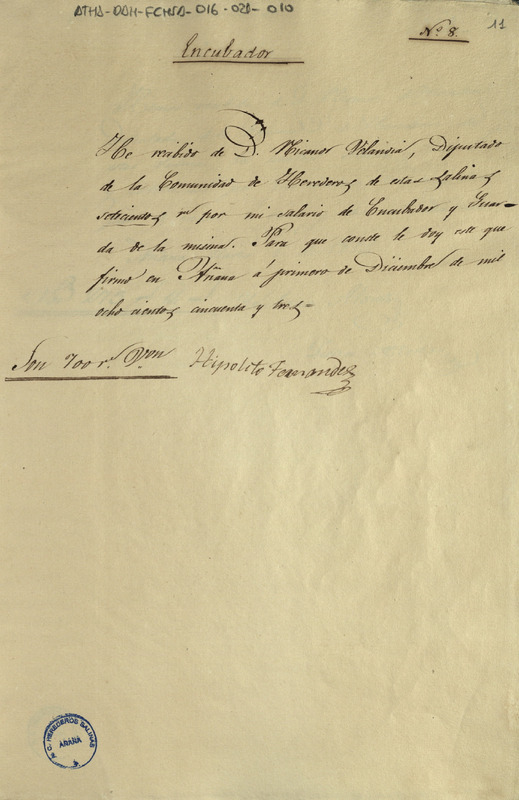 ATHA-DAH-FCHSA-016-021-010
11
Nº 8.
Encubador
He recibido de D. Nicanor Velandia, Diputado
de la Comunidad de Herederos de estas Salinas
setecientos rs por mi salario de Encubador y Guar=
da de la misma. Para que conste le doy este que
firmo en Añana á primero de Diciembre de mil
ocho cientos cincuenta y tres=
Son 700 rs. Von
Hipolito Fernandez
C. HEREDEROS SALINAS
AÑANA